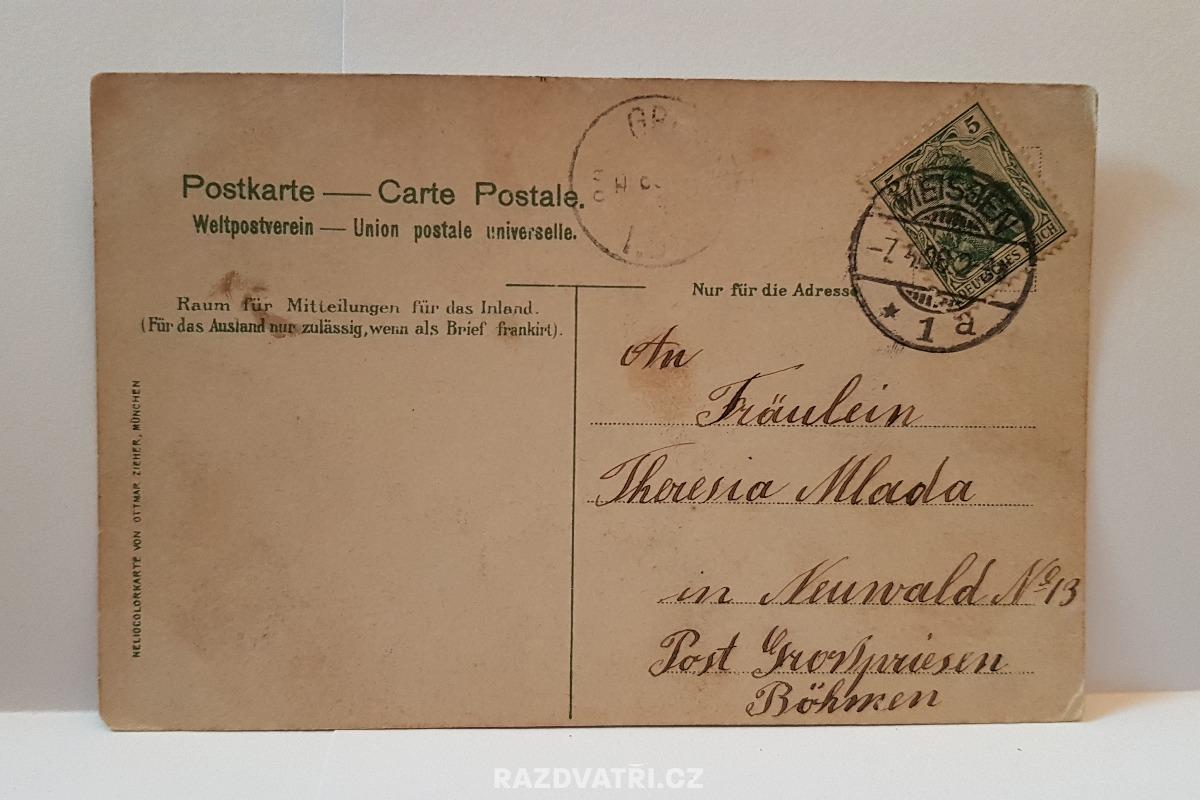 Postkarte — Carte Postale.
Weltpostverein — Union postale universelle.
Raum für Mitteilungen für das Inland.
(Für das Ausland nur zulässig, wenn als Brief frankirt).
HELIOCOLORKARTE VON OTTMAR ZIEHER, MÜNCHEN
GR
5 5
DEUTSCHES REICH
MEISSEN
* 1 a
Nur für die Adresse
An
Fräulein
Theresia Mlada
in Neuwald No 13
Post Grosspriesen
Böhmen
RAZDVATŘI.CZ